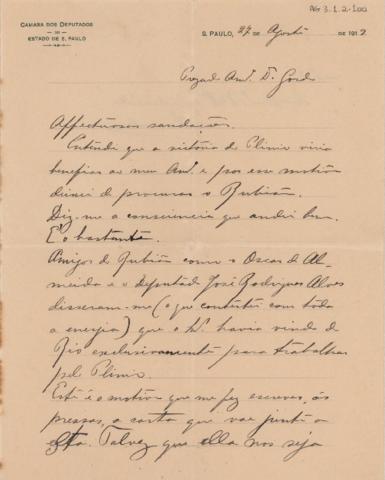 AG 3.1.2-100
CAMARA DOS DEPUTADOS
DO
ESTADO DE S. PAULO
S. PAULO, 27 DE Agosto DE 1912
Prezado Amº. Dr. Gordo
Affectuosas saudações.
Entendi que a victoria do Plinio viria
beneficiar ao meu Amº. e por esse motivo
deixei de procurar o Rubião.
Diz-me a consciencia que andei bem.
E' o bastante.
Amigos do Rubião como o Oscar de Al-
meida e o Deputado José Rodrigues Alves
disseram-me (o que contestei com toda
a energia) que o Sr. havia vindo do
Rio exclusivamente para trabalhar
pelo Plinio.
Este é o motivo que me fez escrever, ás
pressas, a carta que vae junto a
esta. Talvez que ella nos seja